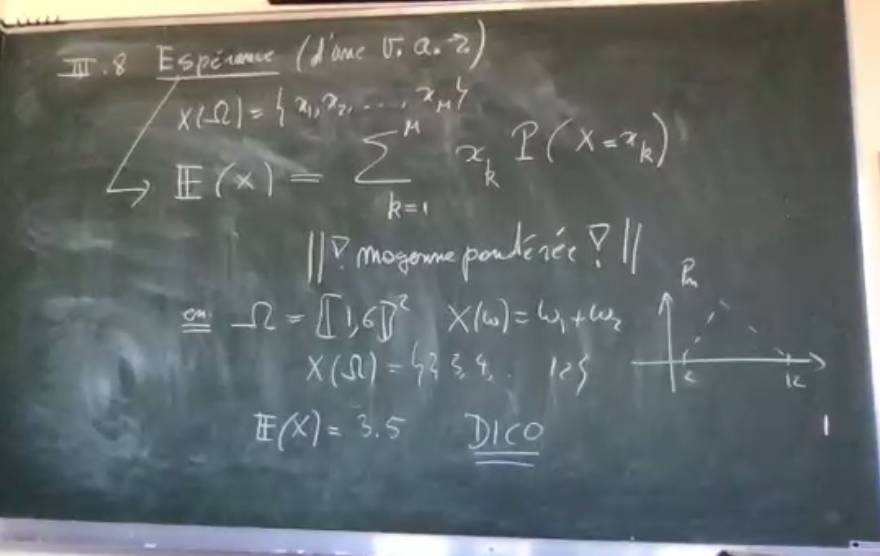 III.8 Espérance (d'une v.a.r)
X(Ω) = { x₁, x₂, ..., x_M }
E(X) = ∑_{k=1}^{M} x_k P(X = x_k)
moyenne pondérée
Ω = ⟦1,6⟧² X(ω) = ω₁ + ω₂
X(Ω) = {2, 3, 4, . 12}
E(X) = 3.5 DICO